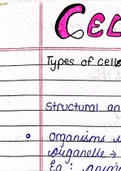 Cel
Types of cells
Structural an
Organisms w
organelle →
Eg: anim